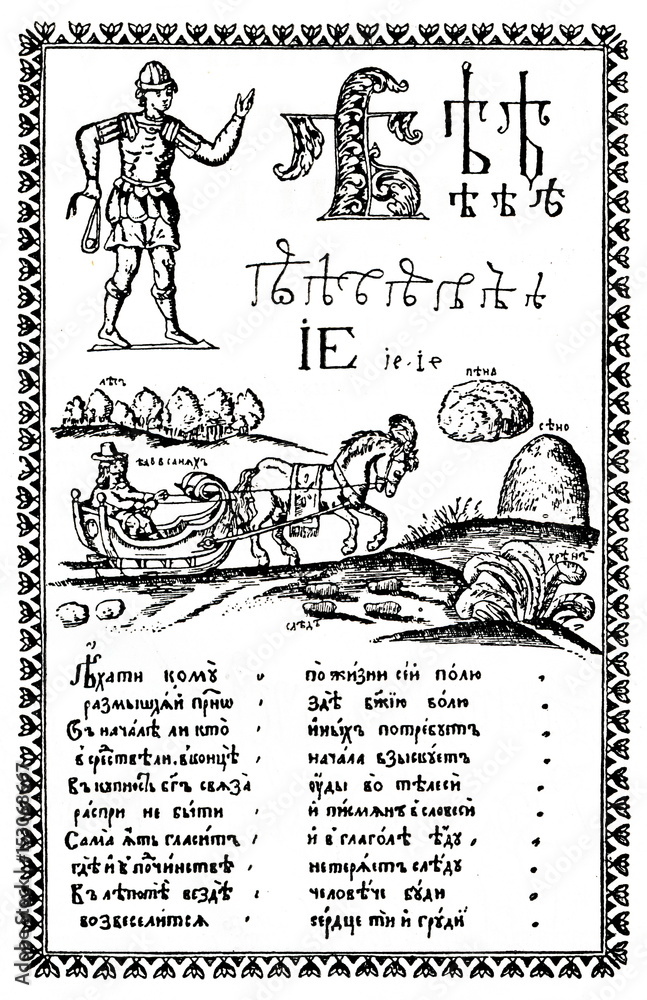 Ѣ Ѣ Ѣ
ѣ ѣ ѣ
ѣ ѣ ѣ ѣ ѣ ѣ ѣ
ІЕ іе . іе
пѣна
лѣсъ
сѣно
ѣдо в санѧхъ
хрѣнъ
слѣдъ
Ѣхати кому по жизни сїй полю
размышлѧй прїѡ здѣ бжїю волю
Въ началѣ ли кто иныхъ потребуетъ
в срествѣ ли, в концѣ начала взыскуетъ
Въ купность бгъ свѧза уды во тѣлеси
распри не быти и писмѧнъ в словеси
Сама ѧть гласитъ и в глаголѣ ѣду
гдѣ и в починствѣ не терѧетъ слѣду
Въ лѣпотѣ вездѣ человѣче буди
возвеселитсѧ сердце ти и груди